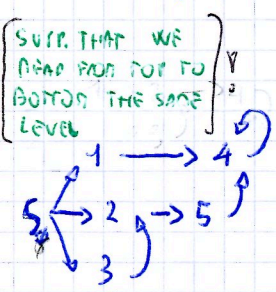 SUPP. THAT WE
READ FROM TOP TO
BOTTOM THE SAME
LEVEL
!
1 → 4
S → 2 → 5
3